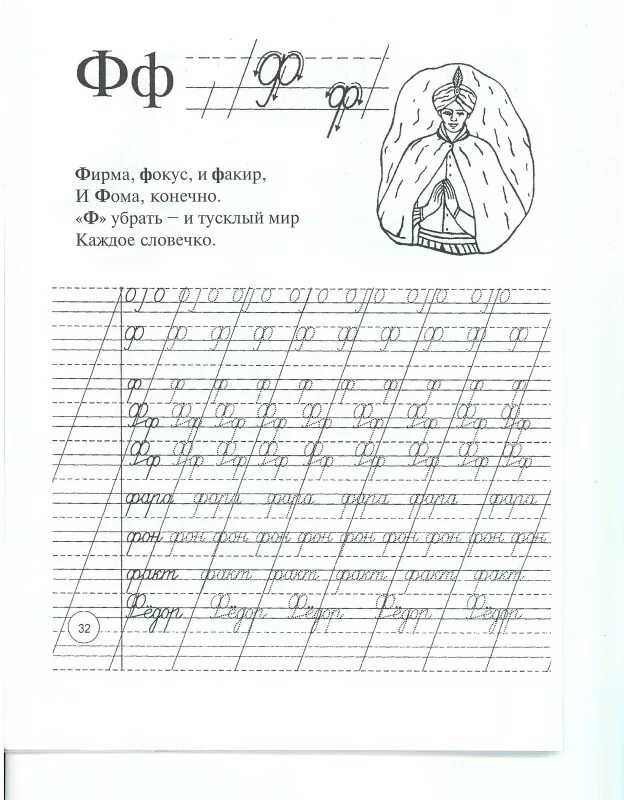 Фф Ф ф
Фирма, фокус, и факир,
И Фома, конечно.
«Ф» убрать – и тусклый мир
Каждое словечко.
ф ф ф ф ф ф ф ф ф ф
ф ф ф ф ф ф ф ф ф ф
Фф Фф Фф Фф Фф Фф Фф Фф Фф
Фф Фф Фф Фф Фф Фф Фф Фф Фф
фара фара фара фара фара фара
фон фон фон фон фон фон фон фон фон фон
факт факт факт факт факт факт
Фёдор Фёдор Фёдор Фёдор Фёдор
32